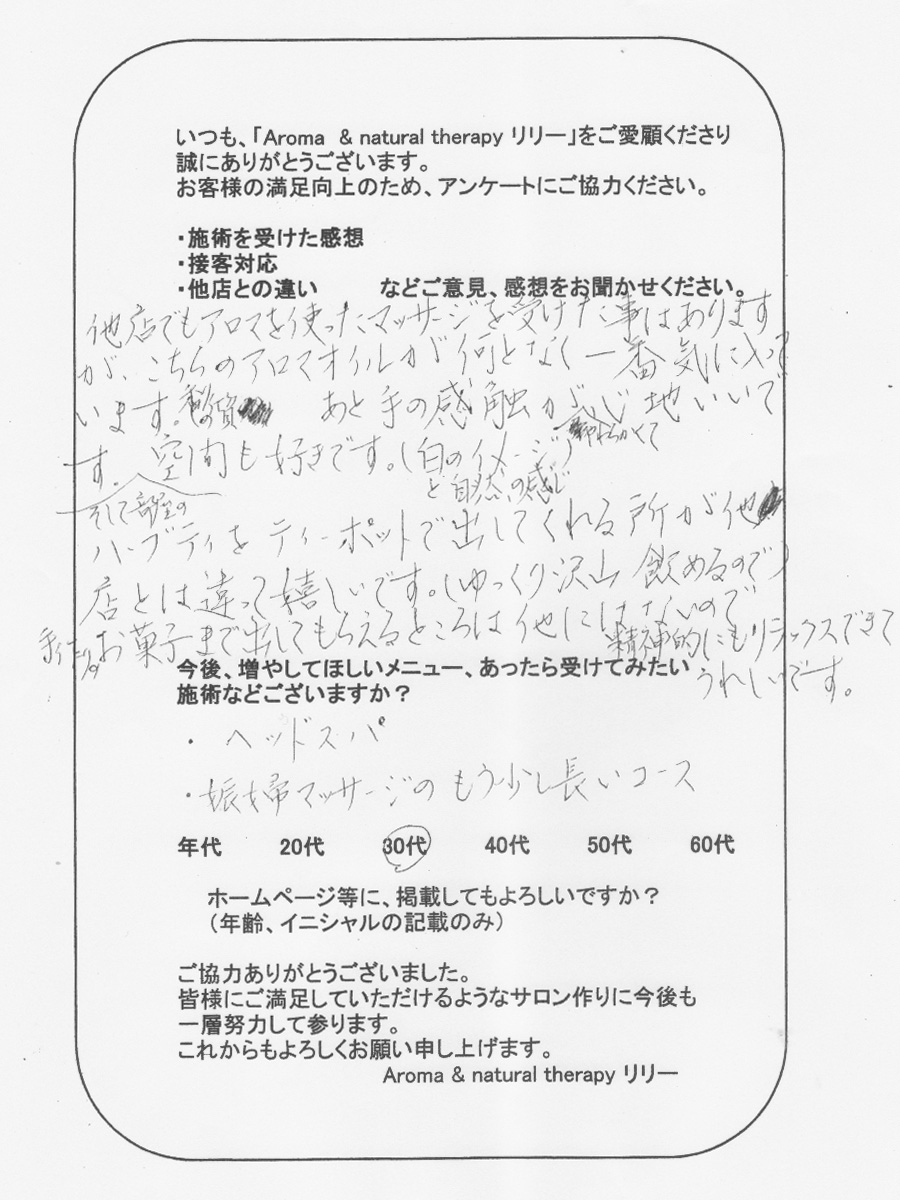 いつも、「Aroma & natural therapy リリー」をご愛顧くださり
誠にありがとうございます。
お客様の満足向上のため、アンケートにご協力ください。
・施術を受けた感想
・接客対応
・他店との違い などご意見、感想をお聞かせください。
他店でもアロマを使ったマッサージを受けた事はあります
が、こちらのアロマオイルが何となく一番気に入って
います。 あと手の感触が 心地いいで
やわらかくて
す。 空間も好きです。(白のイメージ)
と自然の感じ
そして部屋の
ハーブティを ティーポットで出してくれる所が他
店とは違って嬉しいです。(ゆっくり沢山 飲めるので)
お菓子まで出してもらえるところは他にはないので
精神的にもリラックスできて
うれしいです。
今後、増やしてほしいメニュー、あったら受けてみたい
施術などございますか?
・ ヘッドスパ
・妊婦マッサージのもう少し長いコース
年代 20代 30代 40代 50代 60代
ホームページ等に、掲載してもよろしいですか?
(年齢、イニシャルの記載のみ)
ご協力ありがとうございました。
皆様にご満足していただけるようなサロン作りに今後も
一層努力して参ります。
これからもよろしくお願い申し上げます。
Aroma & natural therapy リリー